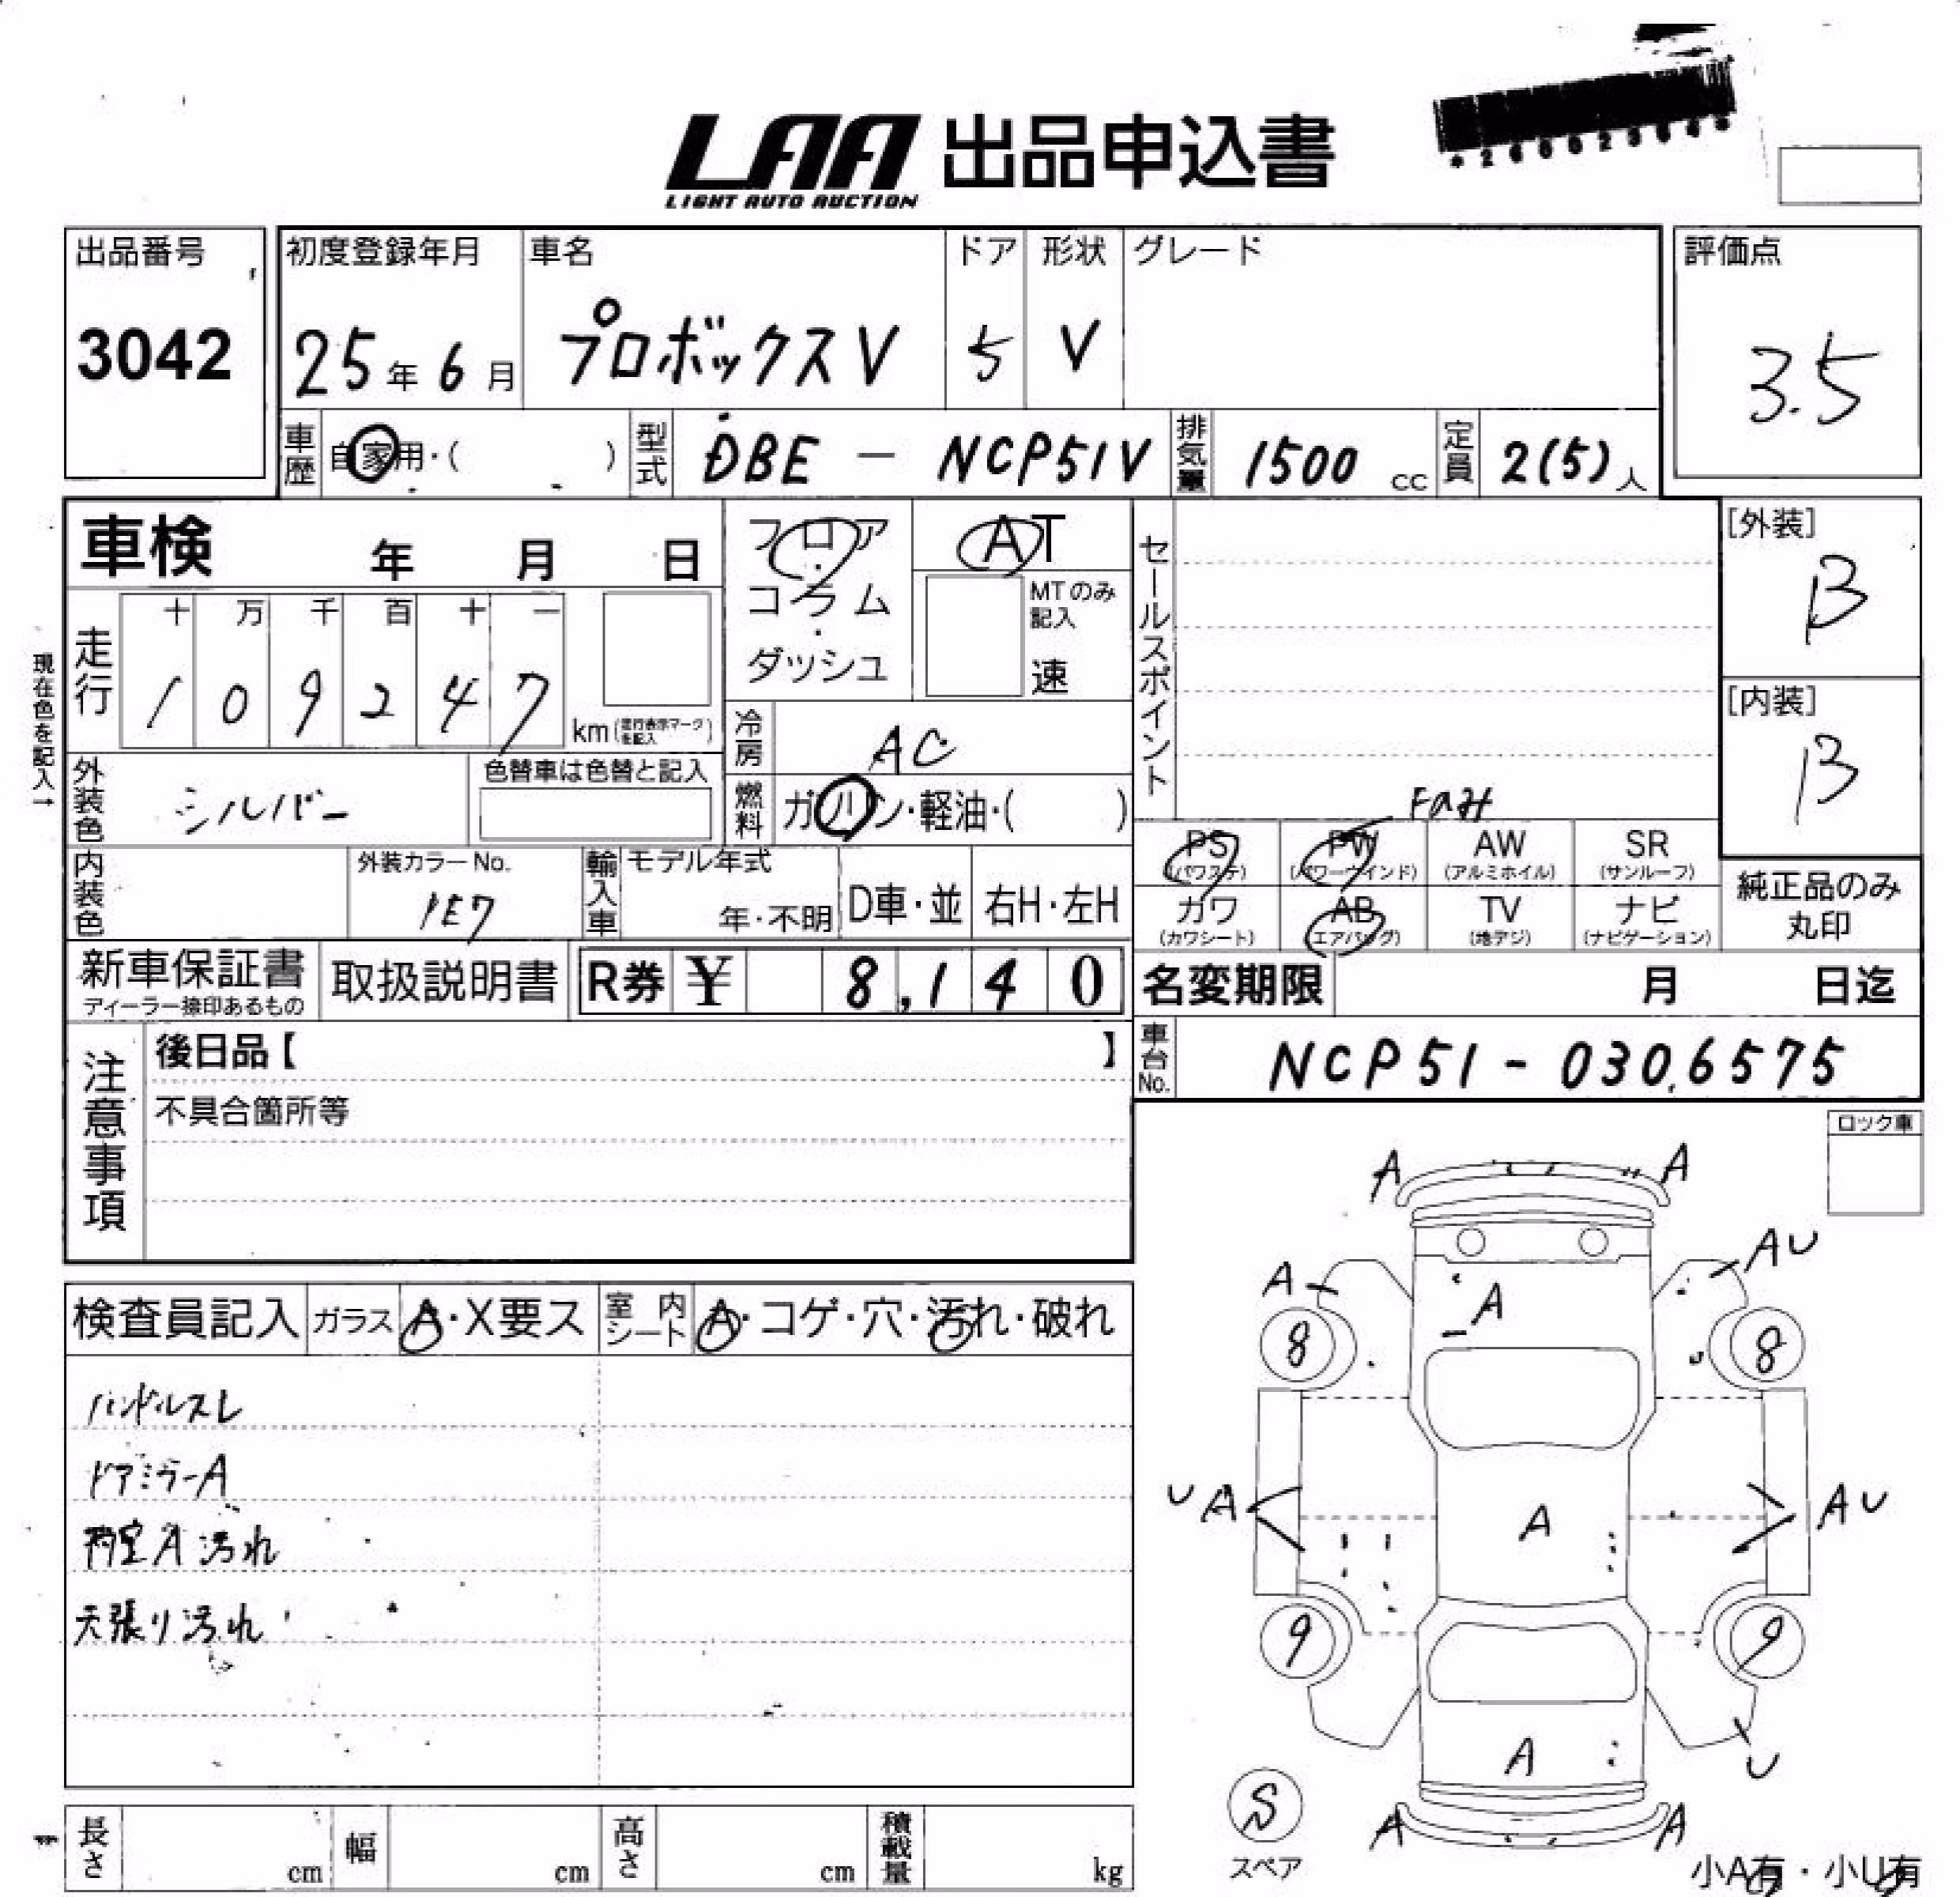 LAA 出品申込書
LIGHT AUTO AUCTION
出品番号
3042
初度登録年月
25年6月
車名
プロボックスV
ドア
5
形状
V
グレード
評価点
3.5
車歴
自家用・( )
型式
DBE - NCP51V
排気量
1500 cc
定員
2(5)人
車検 年 月 日
走行
十 万 千 百 十 一
1 0 9 2 4 7
km(走行表示マークを記入)
現在色を記入→
外装色
シルバー
色替車は色替と記入
内装色
外装カラーNo.
1E7
輸入車
モデル年式
年・不明
D車・並
右H・左H
フロア・コラム・ダッシュ
AT
MTのみ記入
速
冷房
AC
燃料
ガソリン・軽油・( )
セールスポイント
PS
(パワステ)
PW
(パワーウインド)
AW
(アルミホイル)
SR
(サンルーフ)
カワ
(カワシート)
AB
(エアバッグ)
TV
(地デジ)
ナビ
(ナビゲーション)
[外装]
B
[内装]
B
純正品のみ
丸印
新車保証書
ディーラー捺印あるもの
取扱説明書
R券 ¥ 8,140
名変期限 月 日迄
車台No.
NCP51-0306575
注意事項
後日品【 】
不具合箇所等
ロック車
検査員記入
ガラス
A・X要ス
室内シート
A・コゲ・穴・汚れ・破れ
ハンドルスレ
ドアミラーA
荷室A汚れ
天張り汚れ
A A
A A AU
8 8
UA A AU
9 9
A U
S
A A
スペア
小A有・小U有
長さ cm
幅 cm
高さ cm
積載量 kg